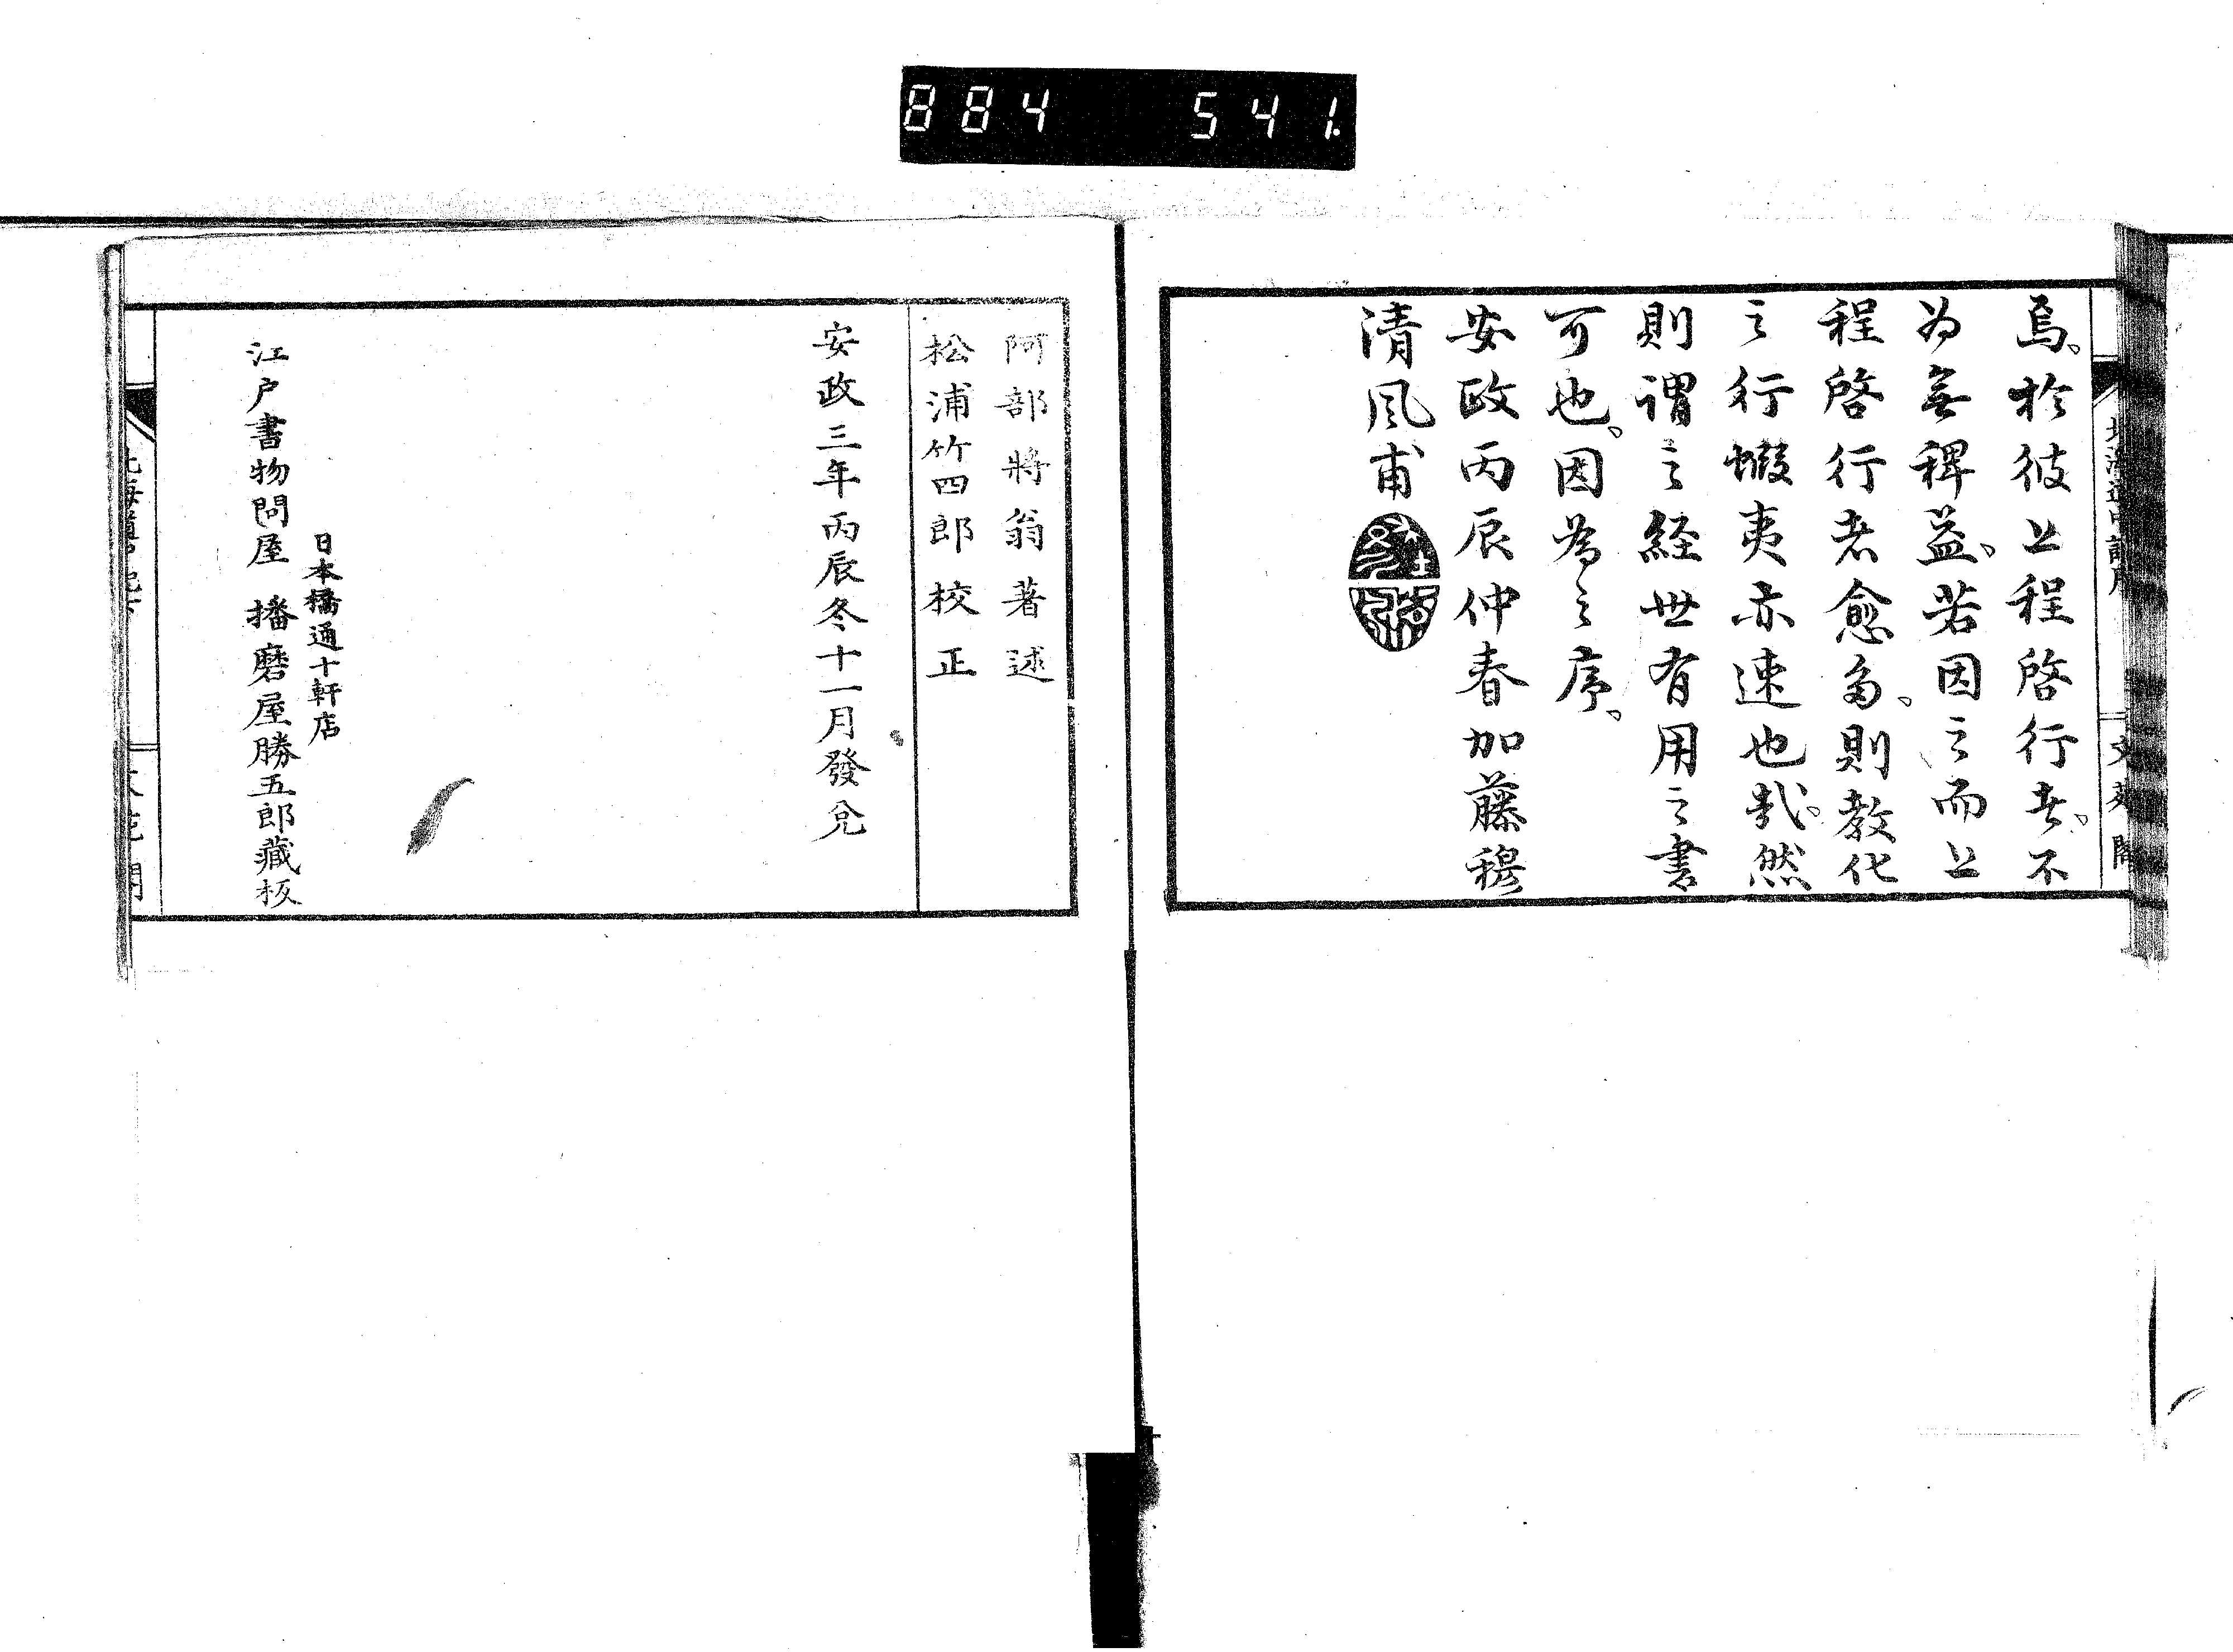 884 541.
焉、於彼上程啓行者、不
為無稗益、若因之而上
程啓行者愈多、則教化
之行蝦夷亦速也哉、然
則謂之経世有用之書
可也、因為之序、
安政丙辰仲春加藤穆
清風甫
阿部將翁著述
松浦竹四郎校正
安政三年丙辰冬十一月發兌
日本橋通十軒店
江戸書物問屋 播磨屋勝五郎藏板